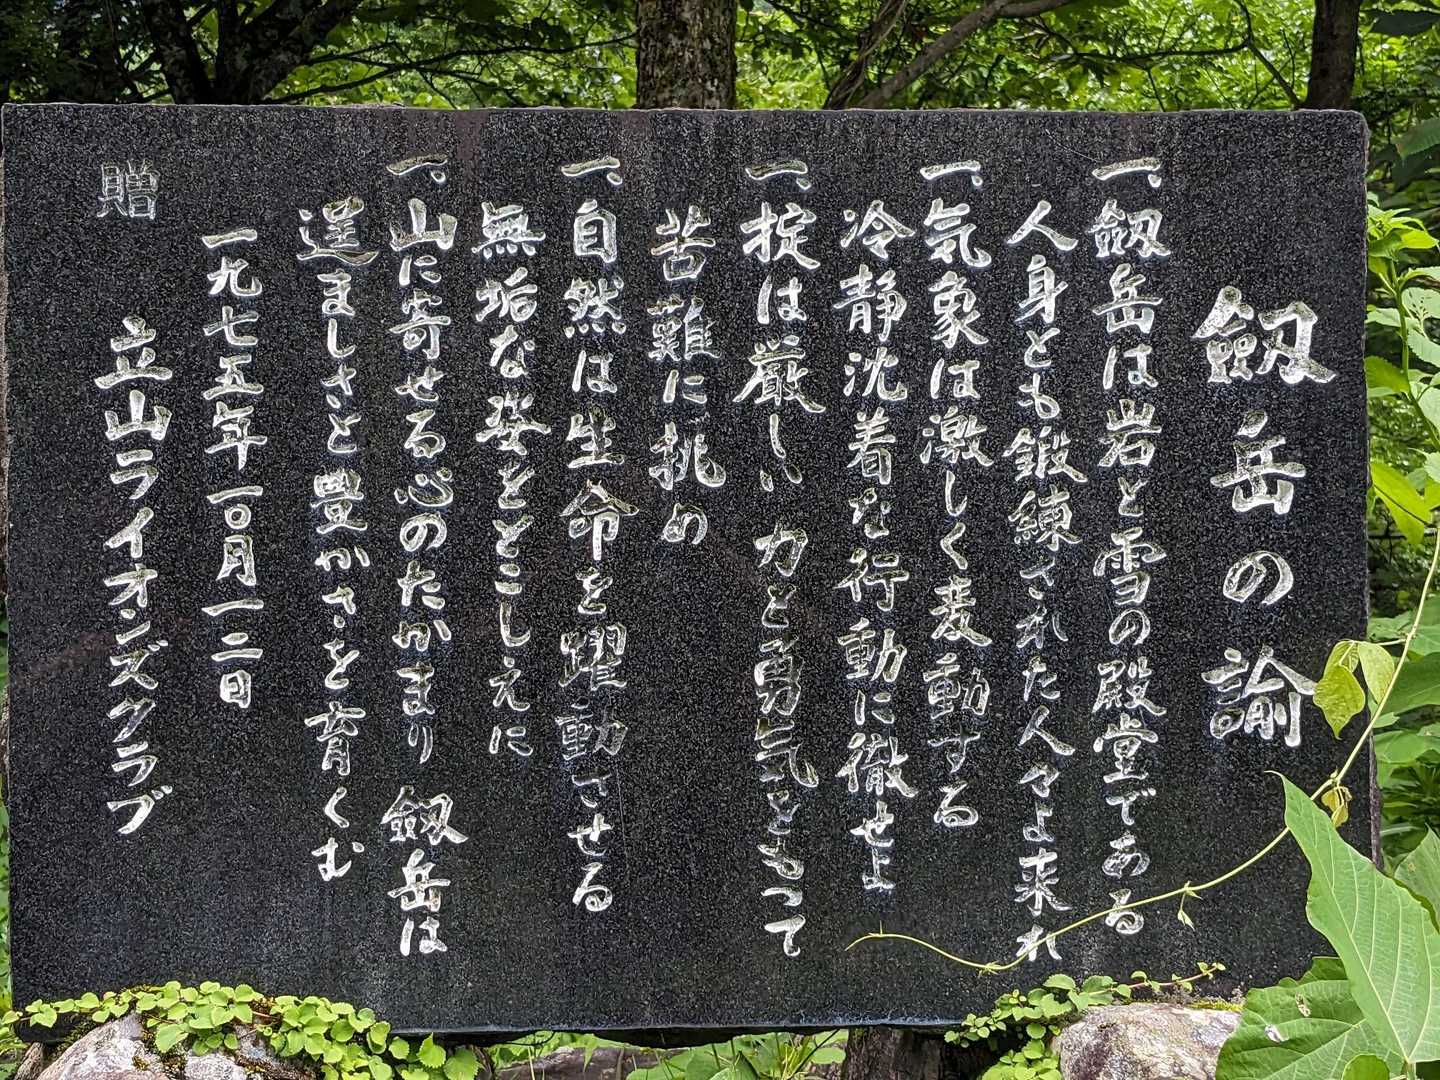 劔岳の諭
一、劔岳は岩と雪の殿堂である
人身とも鍛練された人々よ来れ
一、気象は激しく変動する
冷静沈着な行動に徹せよ
一、掟は厳しい力と勇気ともって
苦難に挑め
一、自然は生命を躍動させる
無垢な姿をとこしえに
一、山に寄せる心のたかまり 劔岳は
逞ましさと豊かさを育くむ
一九七五年一〇月一二日
贈 立山ライオンズクラブ